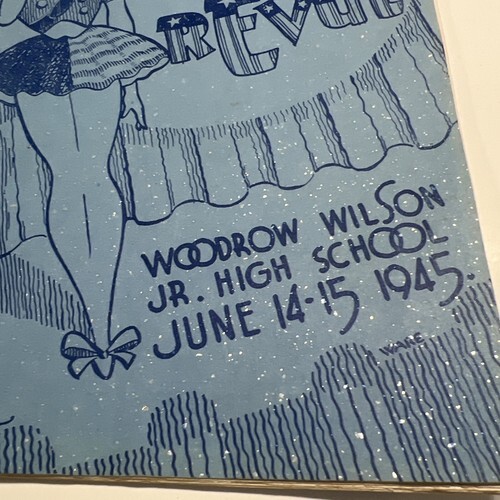 REVUE
WOODROW WILSON
JR. HIGH SCHOOL
JUNE 14-15 1945.
WARE